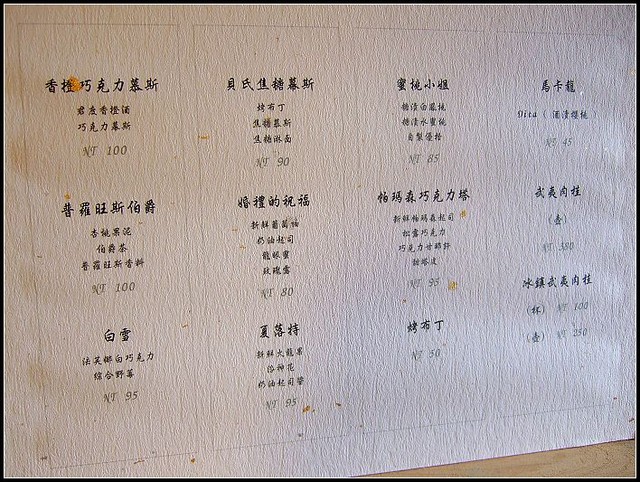 香橙巧克力慕斯
君度香橙酒
巧克力慕斯
NT 100
普羅旺斯伯爵
杏桃果泥
伯爵茶
普羅旺斯香料
NT 100
白雪
法芙娜白巧克力
綜合野莓
NT 95
貝氏焦糖慕斯
烤布丁
焦糖慕斯
焦糖淋面
NT 90
婚禮的祝福
新鮮葡萄柚
奶油起司
龍眼蜜
玫瑰露
NT 80
夏落特
新鮮火龍果
洛神花
奶油起司醬
NT 95
蜜桃小姐
糖漬白鳳桃
糖漬水蜜桃
自製優格
NT 85
帕瑪森巧克力塔
新鮮帕瑪森起司
松露巧克力
巧克力甘那許
甜塔皮
NT 95
烤布丁
NT 50
馬卡龍
Dita ( 酒漬櫻桃 )
NT 45
武夷肉桂
(壺)
NT 380
冰鎮武夷肉桂
(杯) NT 100
(壺) NT 250